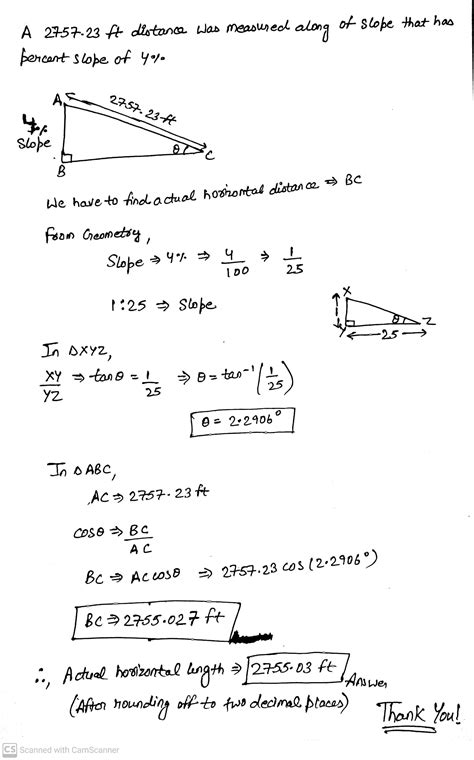 A 2757.23 ft distance was measured along of slope that has
percent slope of 4%.
A
2757.23-ft
4%
Slope
θ
C
B
We have to find actual horizontal distance ⇒ BC
From Geometry,
Slope ⇒ 4% ⇒ 4/100 ⇒ 1/25
1:25 ⇒ Slope
X
Y
θ
Z
25
In ΔXYZ,
XY/YZ ⇒ tanθ = 1/25 ⇒ θ = tan⁻¹(1/25)
θ = 2.2906°
In ΔABC,
AC ⇒ 2757.23 ft
cosθ ⇒ BC/AC
BC ⇒ AC cosθ ⇒ 2757.23 cos (2.2906°)
BC ⇒ 2755.027 ft
∴, Actual horizontal length ⇒ 2755.03 ft Answer
(After rounding off to two decimal places)
Thank You!
CS Scanned with CamScanner